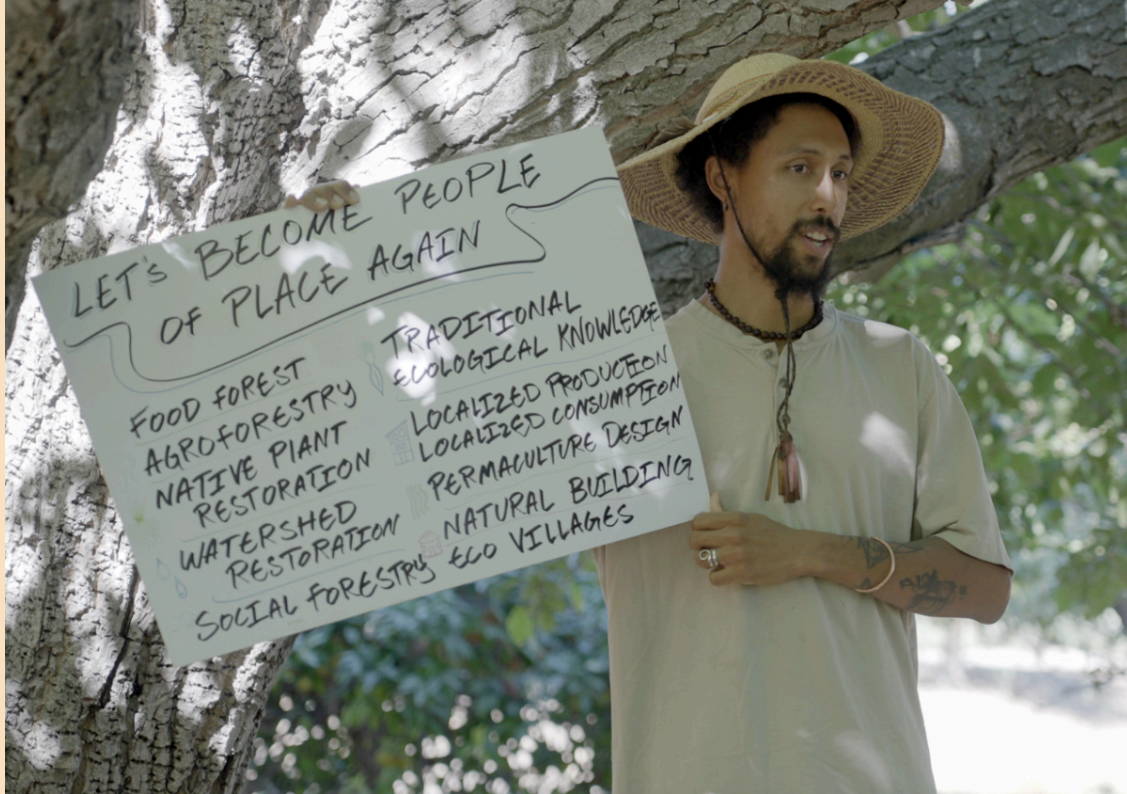 LET'S BECOME PEOPLE
OF PLACE AGAIN
FOOD FOREST
AGROFORESTRY
NATIVE PLANT
RESTORATION
WATERSHED
RESTORATION
SOCIAL FORESTRY
TRADITIONAL
ECOLOGICAL KNOWLEDGE
LOCALIZED PRODUCTION
LOCALIZED CONSUMPTION
PERMACULTURE DESIGN
NATURAL BUILDING
ECO VILLAGES